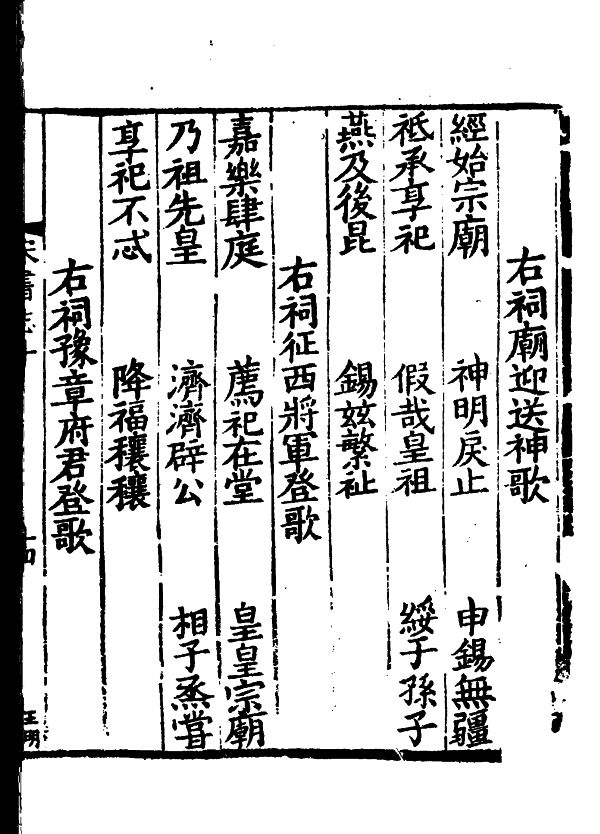 右祠廟迎送神歌
經始宗廟 神明戾止 申錫無疆
祗承享祀 假哉皇祖 綏予孫子
燕及後昆 錫茲繁祉
右祠征西將軍登歌
嘉樂肆庭 薦祀在堂 皇皇宗廟
乃祖先皇 濟濟辟公 相予烝嘗
享祀不忒 降福穰穰
右祠豫章府君登歌